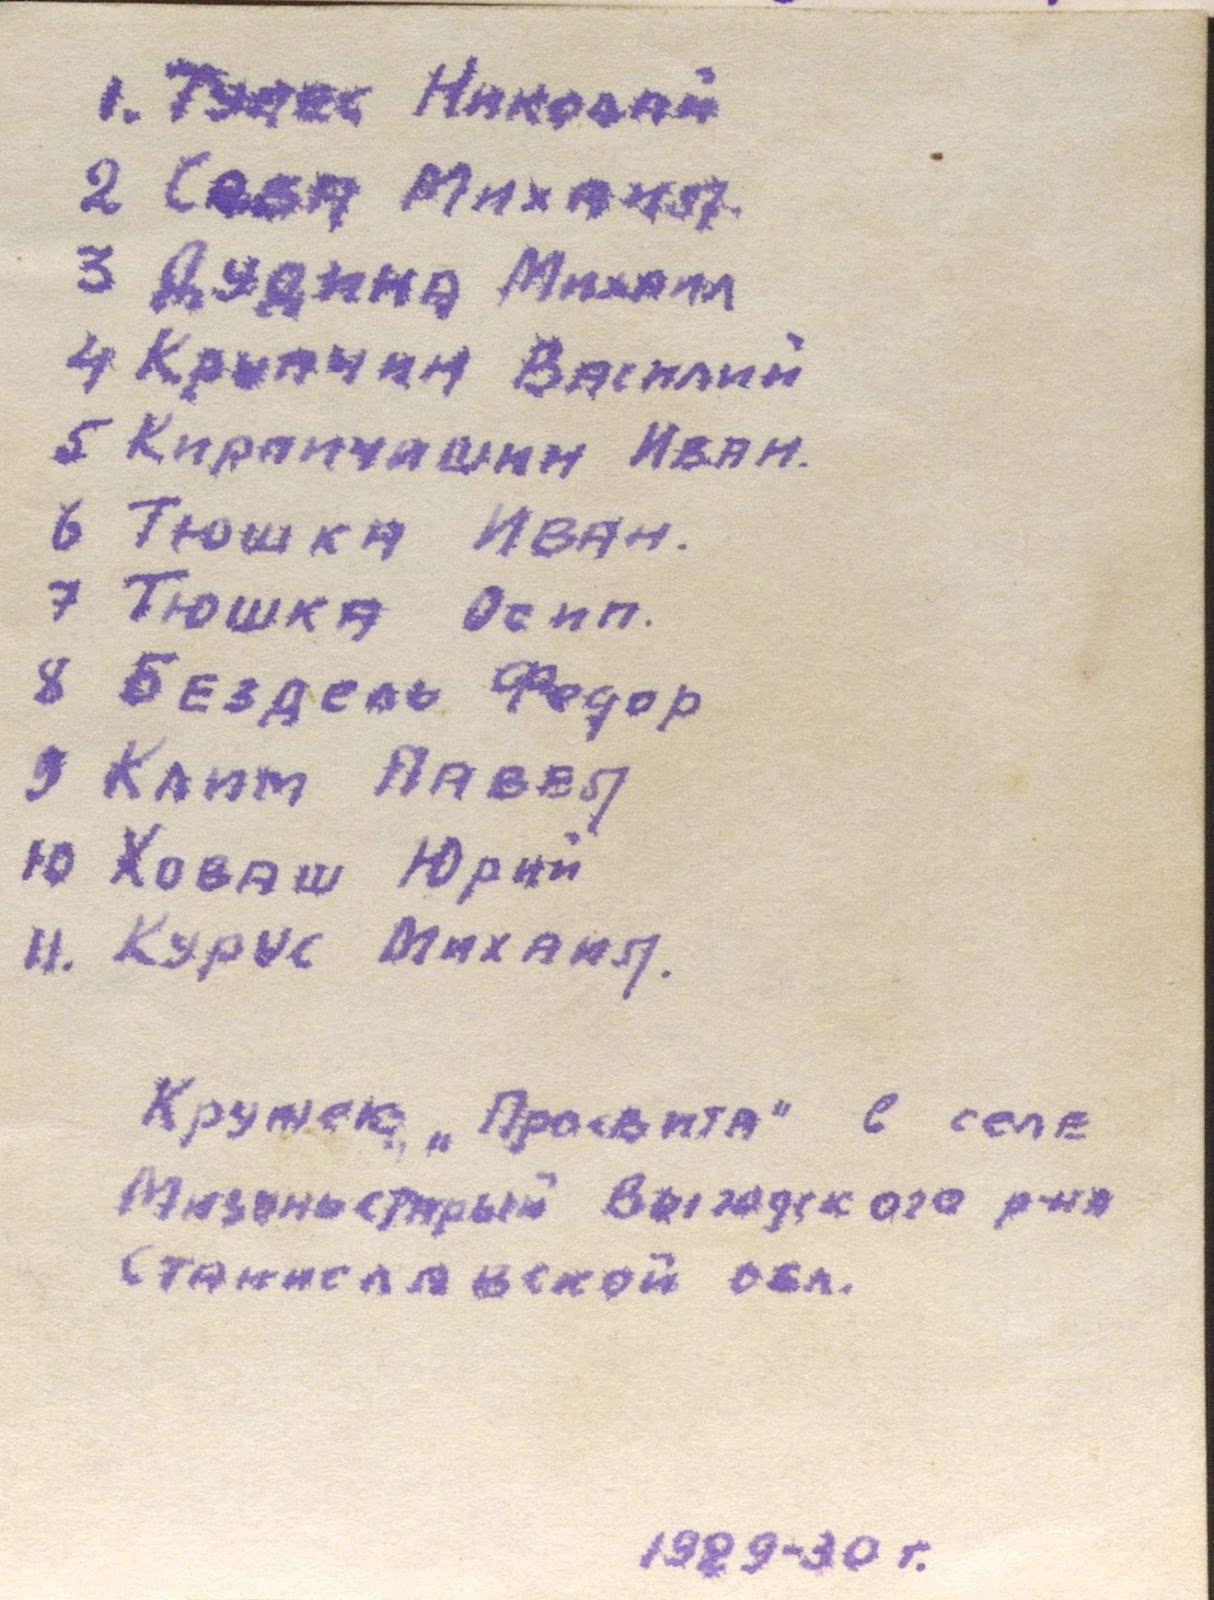 1. Тупес Николай
2 Сова Михаил.
3 Дудина Михаил
4 Крыпчин Василий
5 Кирпичашин Иван.
6 Тюшка Иван.
7 Тюшка Осип.
8 Бездель Федор
9 Клим Павел
10 Ховаш Юрий
11. Курус Михаил.
Кружек „Просвита" в селе
Мизуньстарый Выгодского р-на
Станиславской обл.
1929-30 г.